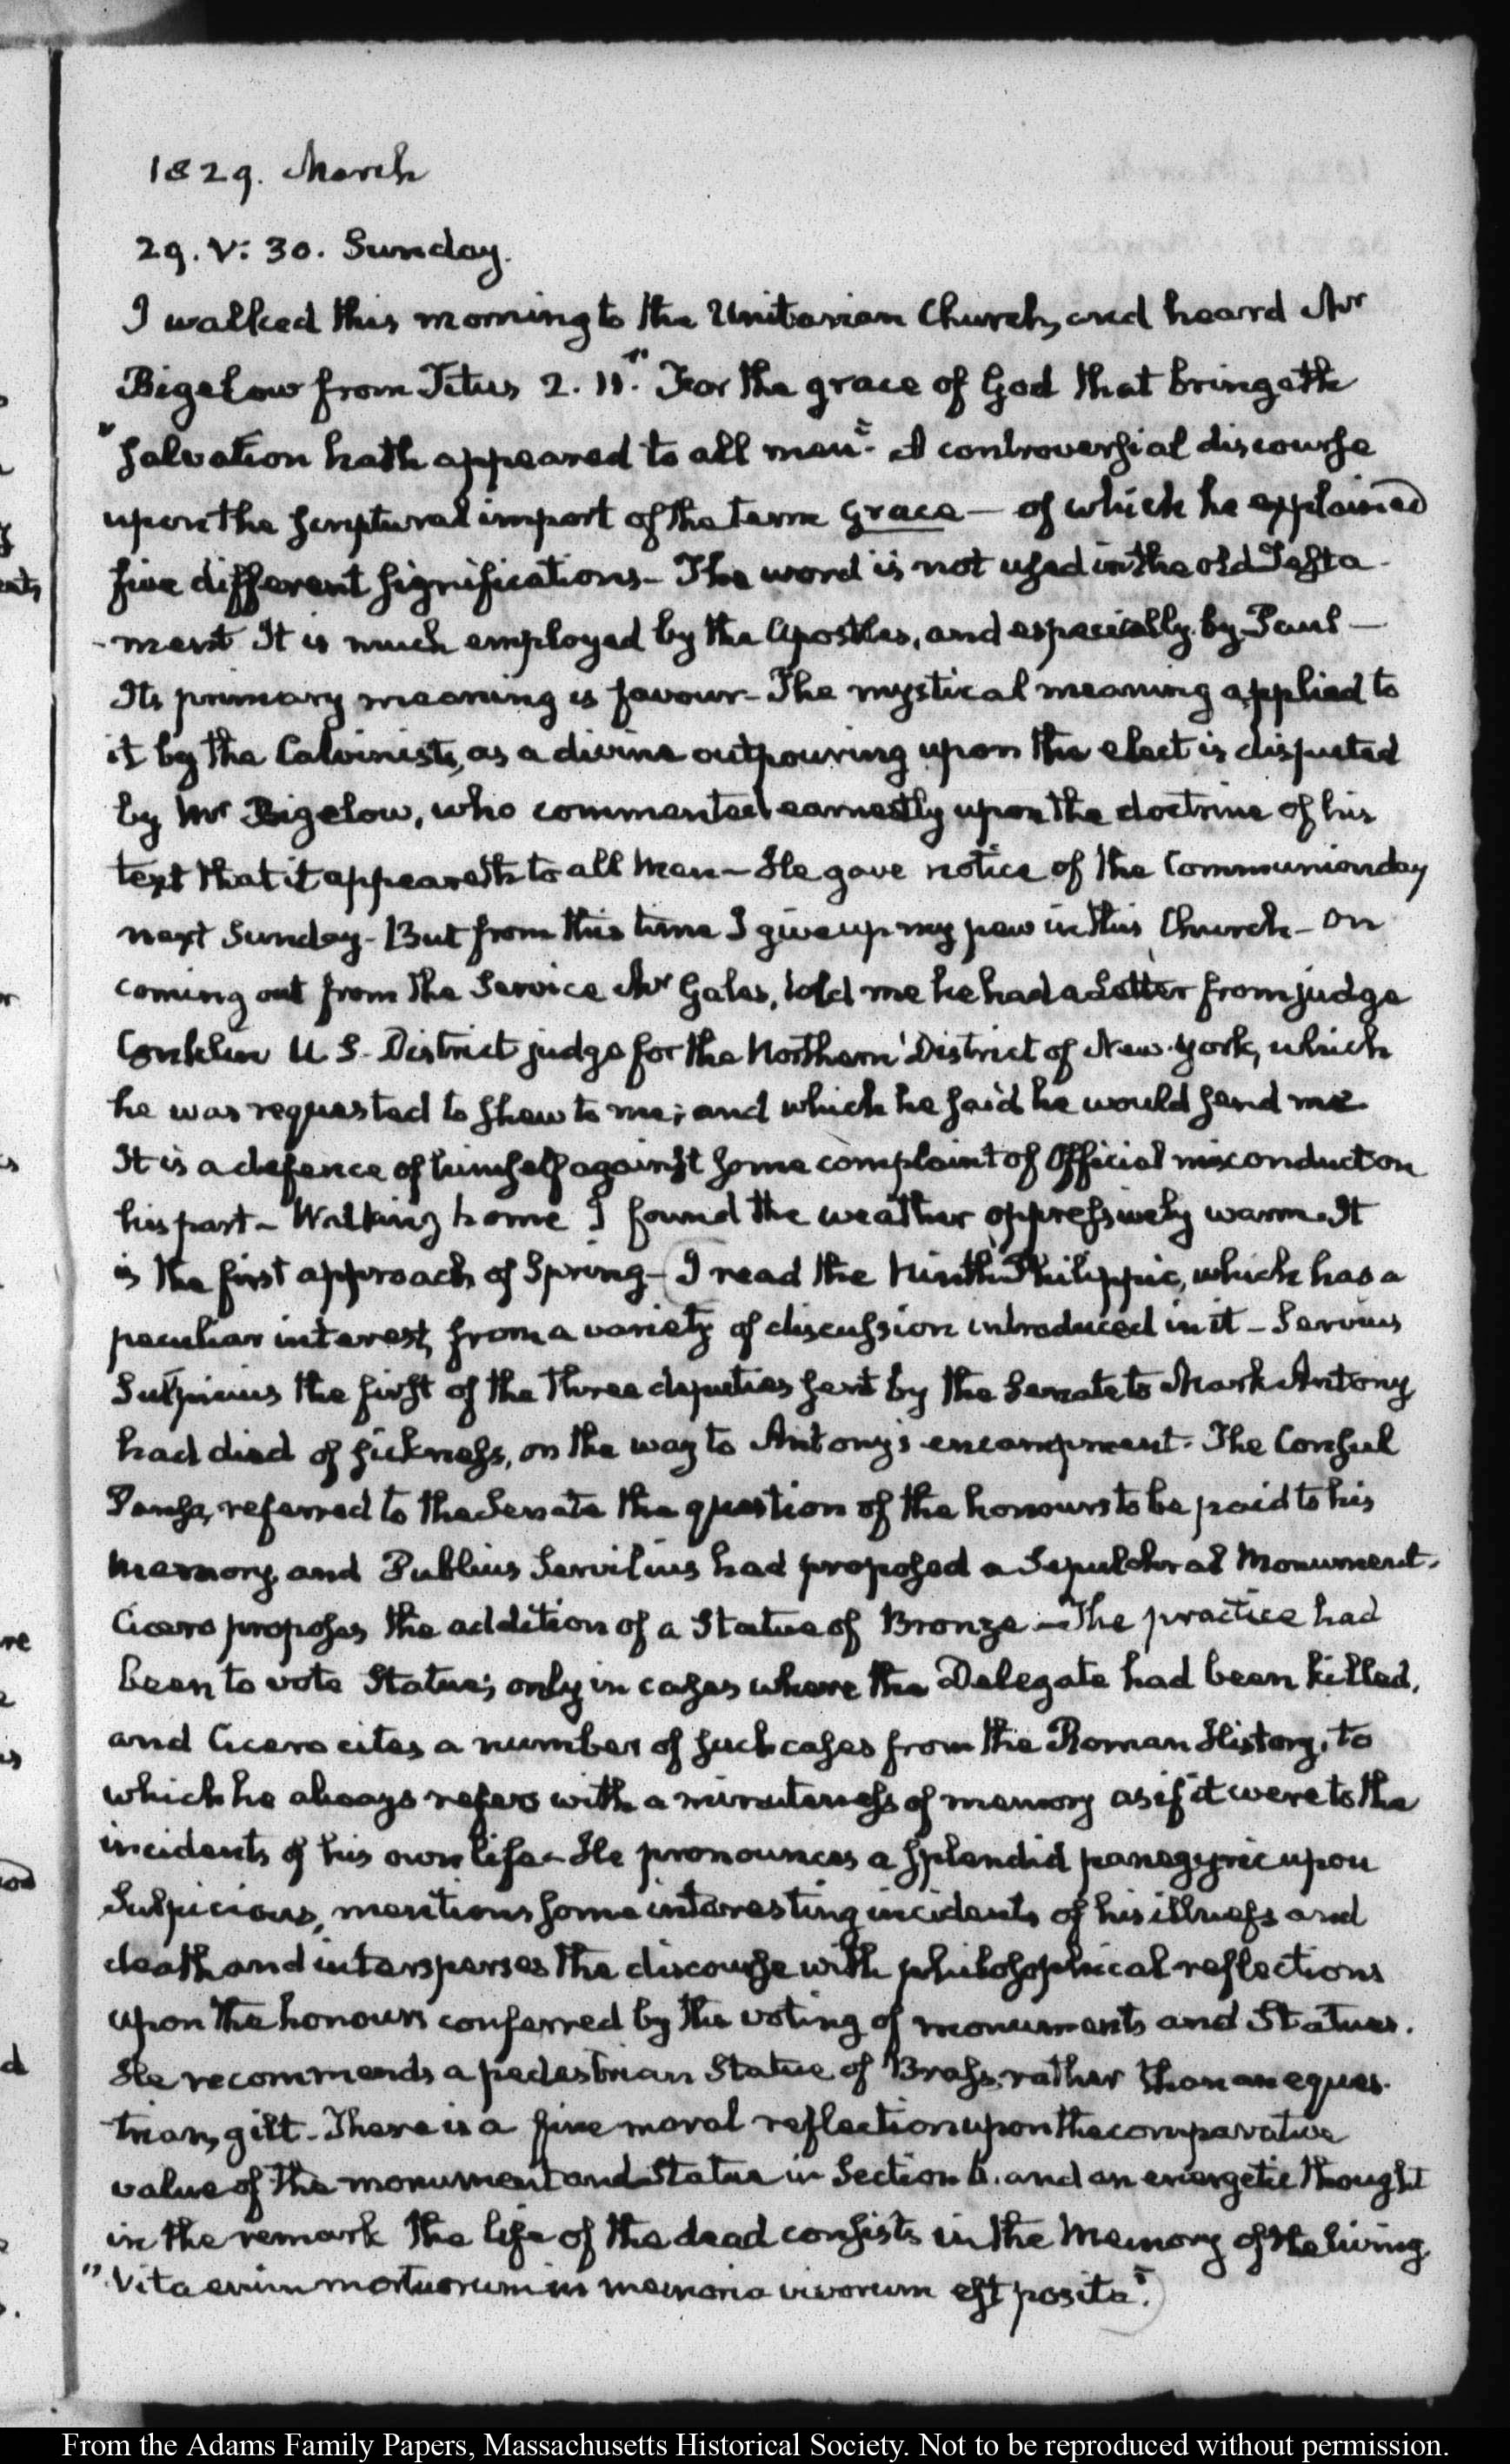 1829. March
29. V: 30. Sunday.
I walked this morning to the Unitarian Church, and heard Mr
Bigelow from Titus 2. 11. "For the grace of God that bringeth
"salvation hath appeared to all men". A controversial discourse
upon the scriptural import of the term grace — of which he explained
five different significations — The word is not used in the old Testa-
-ment It is much employed by the Apostles, and especially by Paul —
Its primary meaning is favour — The mystical meaning applied to
it by the Calvinists, as a divine outpouring upon the elect is disputed
by Mr Bigelow, who commented earnestly upon the doctrine of his
text that it appeareth to all men — He gave notice of the Communion day
next Sunday — But from this time I give up my pew in this Church — On
coming out from the Service Mr Gales, told me he had a Letter from judge
Conklin U S. District judge for the Northern District of New-York, which
he was requested to shew to me; and which he said he would send me
It is a defence of himself against some complaint of Official misconduct on
his part — Walking home I found the weather oppressively warm. It
is the first approach of Spring — (I read the Ninth Philippic, which has a
peculiar interest, from a variety of discussion introduced in it — Servius
Sulpicius the first of the three deputies sent by the Senate to Mark Antony
had died of sickness, on the way to Antony's encampment. The Consul
Pansa, referred to the Senate the question of the honours to be paid to his
memory, and Publius Servilius had proposed a Sepulchral Monument.
Cicero proposes the addition of a Statue of Bronze — The practice had
been to vote Statues only in cases where the Delegate had been killed,
and Cicero cites a number of such cases from the Roman History, to
which he always refers with a minuteness of memory as if it were to the
incidents of his own life — He pronounces a splendid panegyric upon
Sulpicious, mentions some interesting incidents of his illness and
death and intersperses the discourse with philosophical reflections
upon the honours conferred by the voting of monuments and Statues.
He recommends a pedestrian Statue of Brass, rather than an eques-
trian, gilt. There is a fine moral reflection upon the comparative
value of the monument and Statue in Section 6. and an energetic thought
in the remark the life of the dead consists in the Memory of the living
"Vita enim mortuorum in memoria vivorum est posita".)
From the Adams Family Papers, Massachusetts Historical Society. Not to be reproduced without permission.